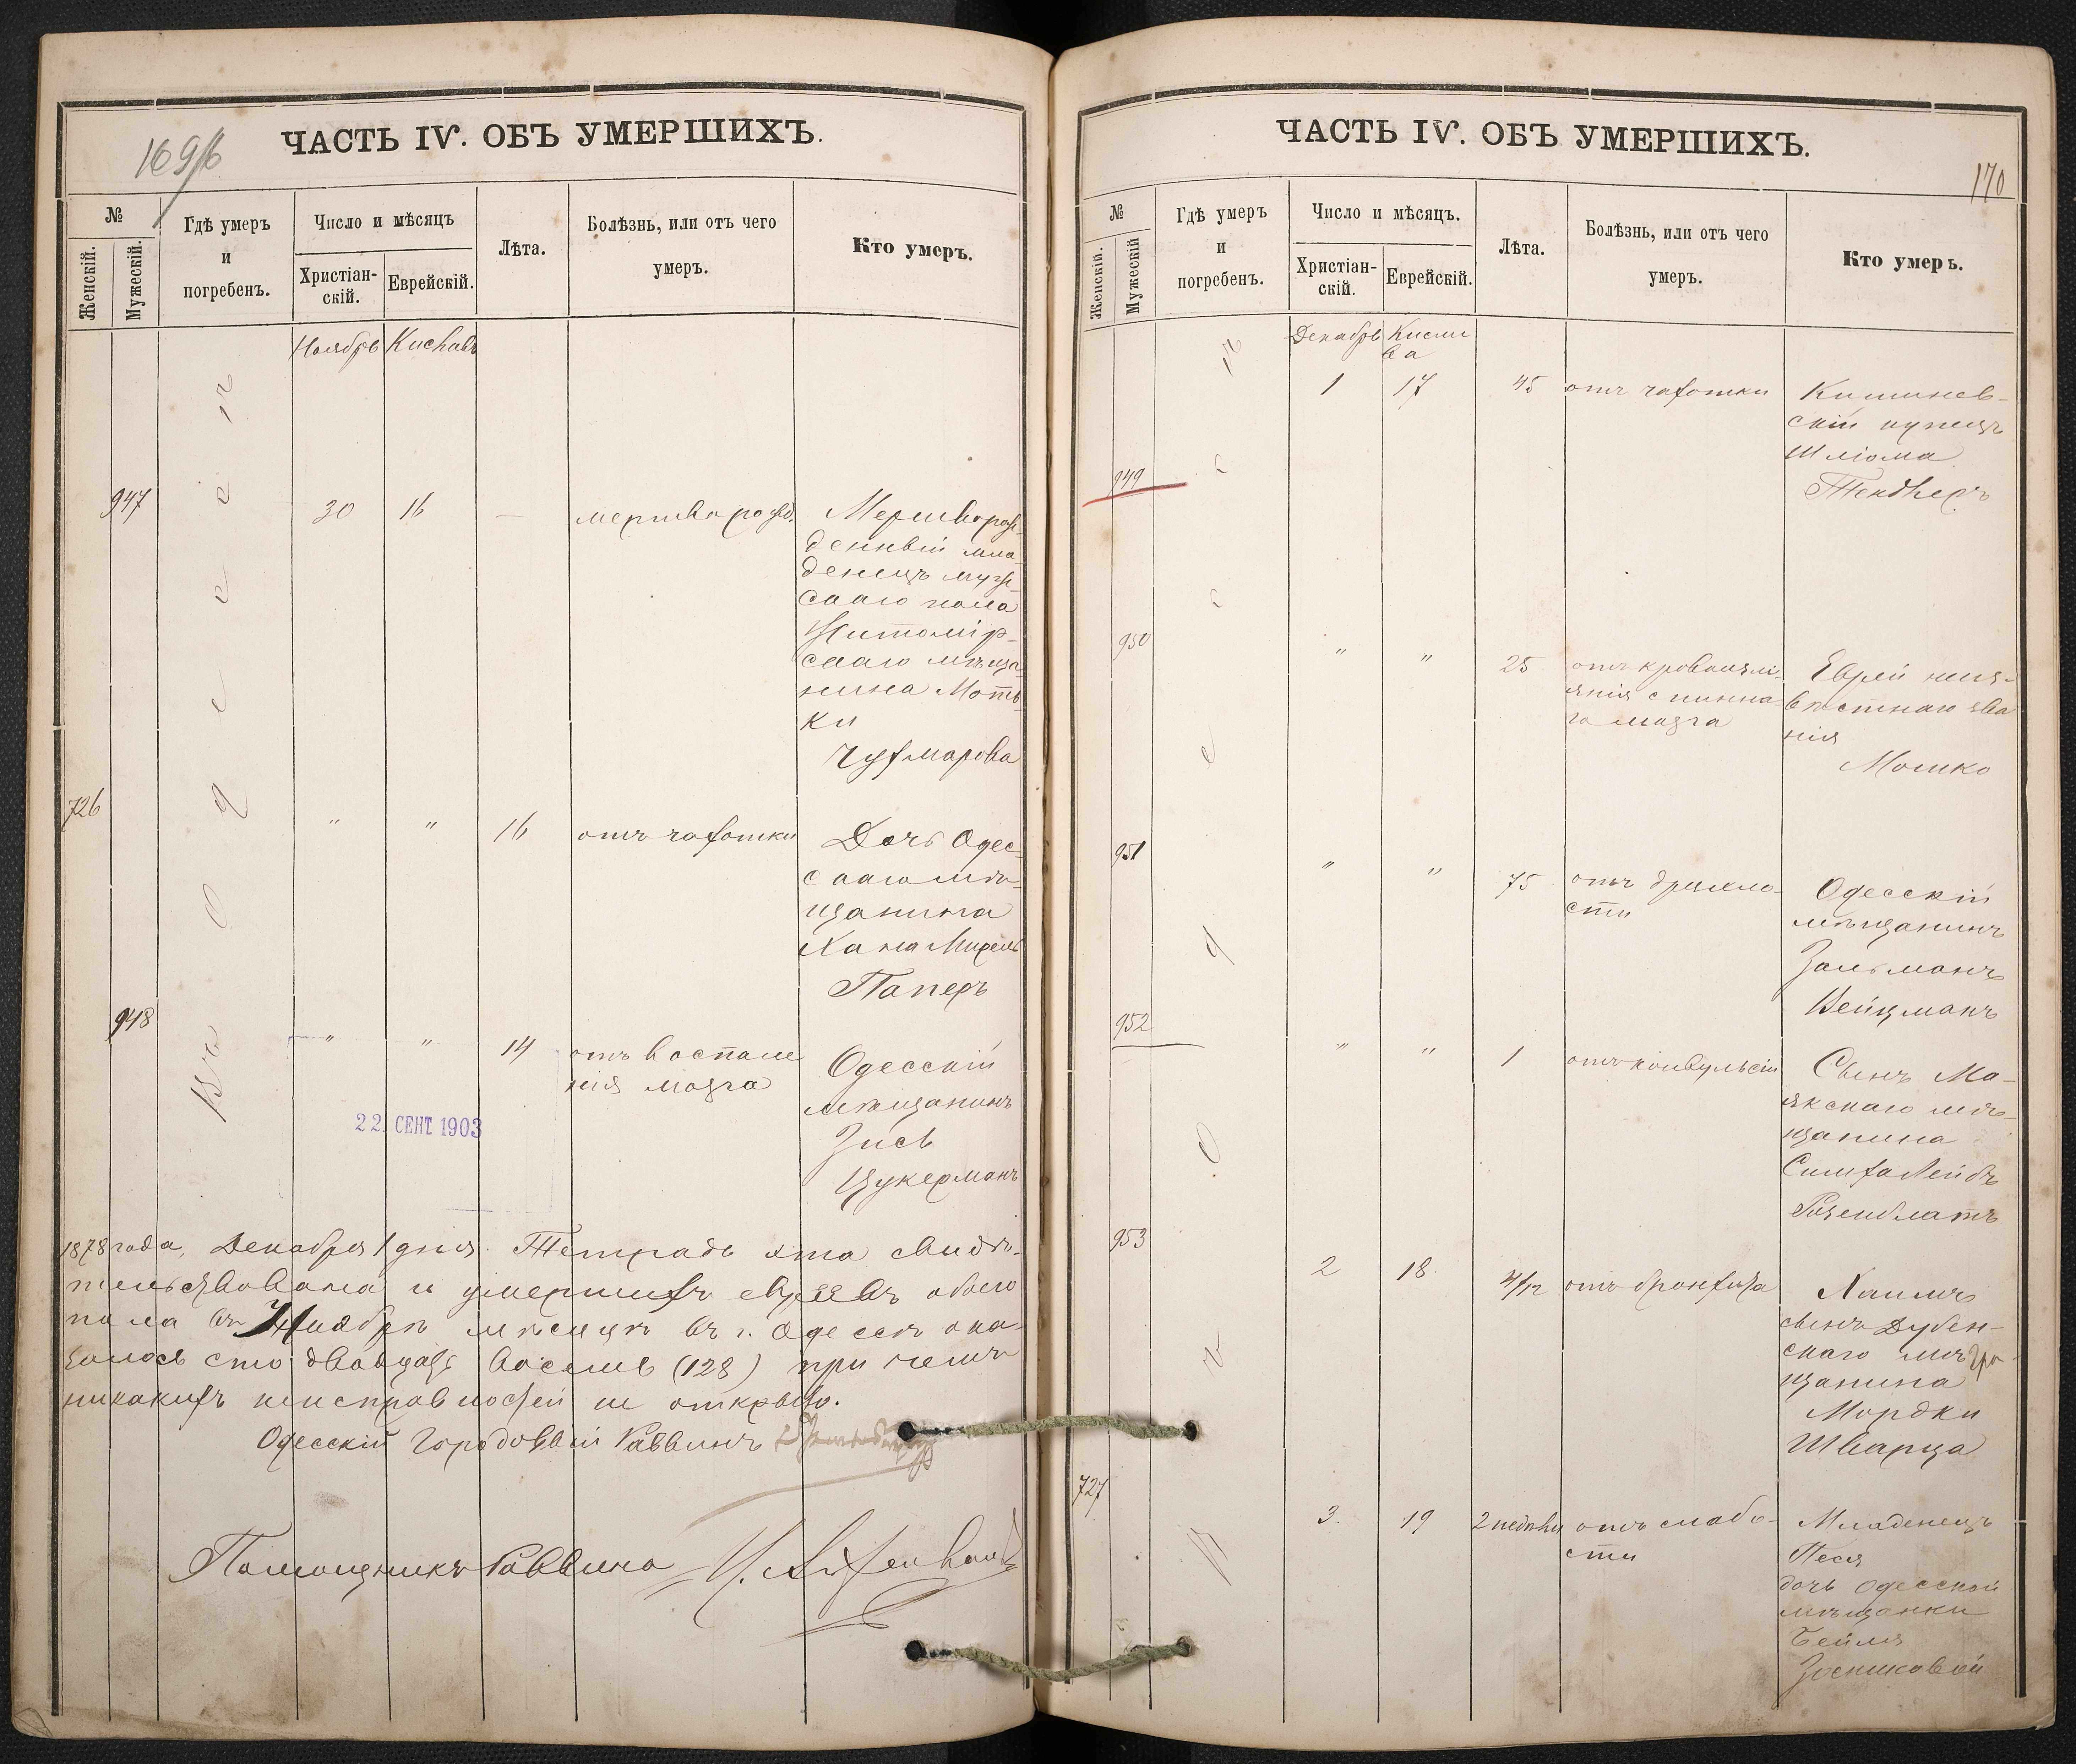 169/б
ЧАСТЬ IV. ОБЪ УМЕРШИХЪ.
№
Женскій.
Мужескій.
Гдѣ умеръ
и
погребенъ.
Число и мѣсяцъ
Христіан-
скій.
Еврейскій.
Лѣта.
Болѣзнь, или отъ чего
умеръ.
Кто умеръ.
Ноябрь
Кислевъ
Въ Одессѣ
947
30
16
—
мертворожд.
Мертворож-
денный мла-
денецъ муж-
скаго пола
Житомір-
скаго мѣща
нина Моть-
ки
726
"
"
16
отъ чахотки
Дочь Одес-
скаго мѣ-
щанина
Хана
Паперъ
948
"
"
14
отъ воспале
нія мозга
Одесскій
мѣщанинъ
Зись
Цукерманъ
22. СЕНТ. 1903
1878 года, Декабря 1 дня. Тетрадь эта свидѣ-
тельствована и умершихъ евреевъ обоего
пола въ Ноябрѣ мѣсяцѣ въ г. Одессѣ ока-
залось сто двадцать восемь (128) при чемъ
никакихъ неисправностей не открыто.
Одесскій Городовый Раввинъ
Помощникъ Раввина
ЧАСТЬ IV. ОБЪ УМЕРШИХЪ.
170
№
Женскій.
Мужескій
Гдѣ умеръ
и
погребенъ.
Число и мѣсяцъ.
Христіан-
скій.
Еврейскій.
Лѣта.
Болѣзнь, или отъ чего
умеръ.
Кто умеръ.
Декабрь
Кисли
ва
Въ Одессѣ
949
1
17
45
отъ чахотки
Кишинев-
скій купецъ
Шліома
Тендлеръ
950
"
"
25
отъ кровоизлі-
янія спинна-
го мозга
Еврей неиз-
вѣстнаго зва
нія
Мошко
951
"
"
75
отъ дряхло-
сти
Одесскій
мѣщанинъ
Зальманъ
Вейцманъ
952
"
"
1
отъ конвульсій
Сынъ Ма-
якскаго мѣ-
щанина
Симха Лейбъ
Розенблатъ
953
2
18
4/12
отъ бронхита
Хаимъ
сынъ Дубен-
скаго мѣ-
щанина
Мордки
Шварца
727
3.
19
2 недѣли
отъ слабо-
сти
Младенецъ
Песя
дочь Одесской
мѣщанки
Бейля